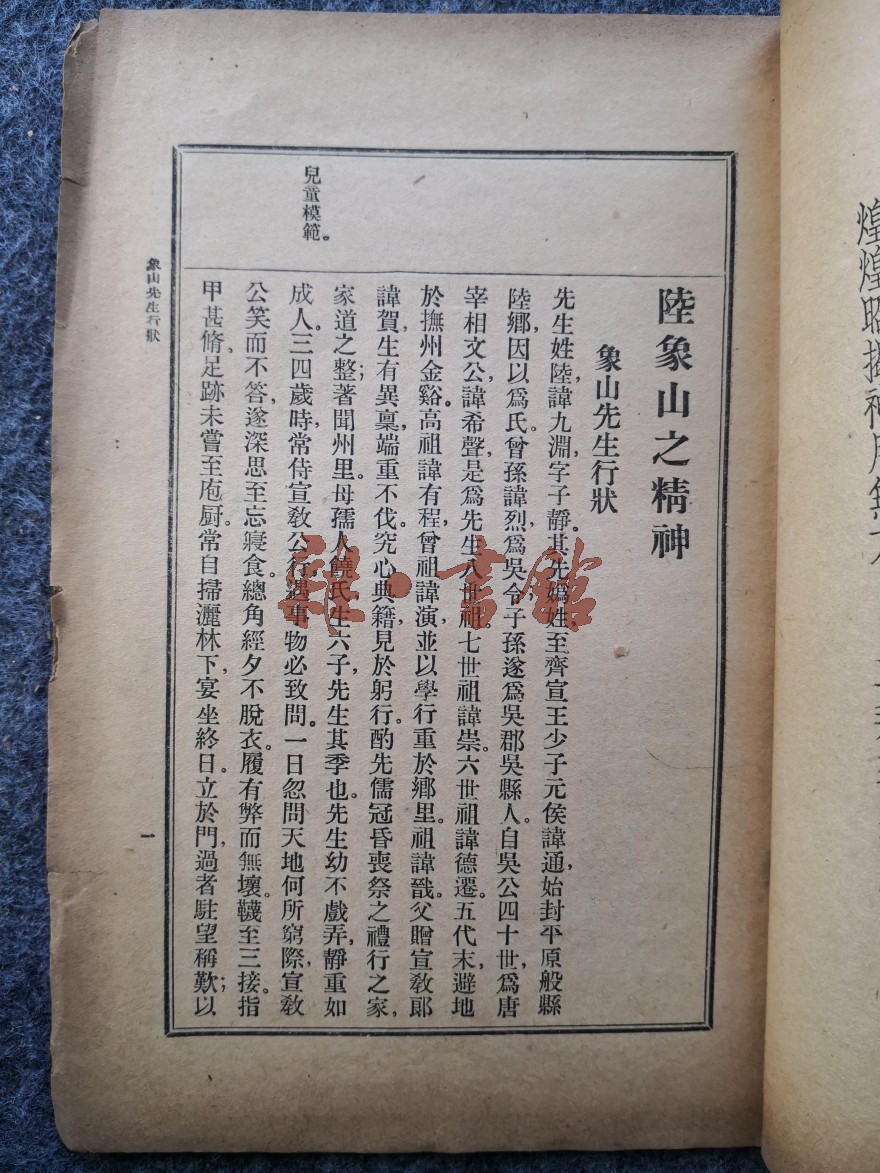 陸象山之精神
象山先生行狀
先生姓陸，諱九淵，字子靜。其先媯姓，至齊宣王少子元侯諱通，始封平原般縣
陸鄉，因以爲氏。曾孫諱烈，爲吳令，子孫遂爲吳郡吳縣人。自吳公四十世，爲唐
宰相文公諱希聲，是爲先生八世祖。七世祖諱崇。六世祖諱德遷。五代末，避地
於撫州金谿。高祖諱有程，曾祖諱演，並以學行重於鄉里。祖諱戩。父贈宣敎郎
諱賀，生有異稟，端重不伐。究心典籍，見於躬行。酌先儒冠昏喪祭之禮行之家，
家道之整，著聞州里。母孺人饒氏，生六子，先生其季也。先生幼不戲弄，靜重如
成人。三四歲時，常侍宣敎公行，遇事物必致問。一日忽問天地何所窮際，宣敎
公笑而不答，遂深思至忘寢食。總角經夕不脫衣，履有弊而無壞。韈至三接。指
甲甚脩，足跡未嘗至庖厨。常自掃灑林下，宴坐終日。立於門，過者駐望稱歎；以
兒童模範。
象山先生行狀
一
雜·書館
煌煌昭